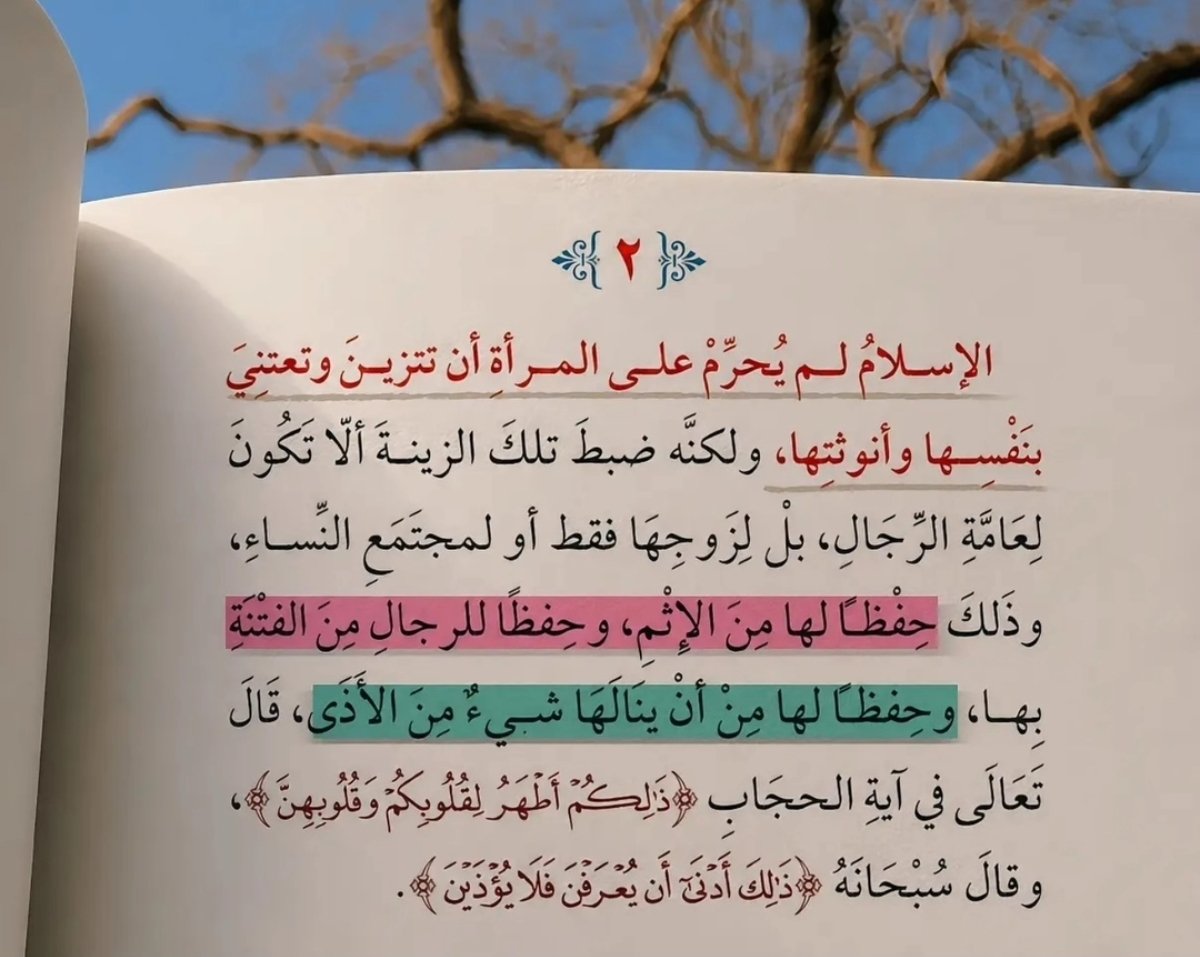 ٢
الإسلامُ لم يُحرِّمْ على المرأةِ أن تتزينَ وتعتنِيَ
بنَفْسِها وأنوثتِها، ولكنَّه ضبطَ تلكَ الزينةَ ألّا تَكُونَ
لِعَامَّةِ الرِّجَالِ، بلْ لِزَوجِهَا فقط أو لمجتَمَعِ النِّساءِ،
وذَلكَ حِفْظًا لها مِنَ الإِثْمِ، وحِفظًا للرجالِ مِنَ الفتْنَةِ
بِها، وحِفظًا لها مِنْ أنْ ينَالَهَا شيءٌ مِنَ الأَذَى، قَالَ
تَعَالَى في آيةِ الحجَابِ ﴿ذَٰلِكُمْ أَطْهَرُ لِقُلُوبِكُمْ وَقُلُوبِهِنَّ﴾،
وقالَ سُبْحَانَهُ ﴿ذَٰلِكَ أَدْنَىٰٓ أَن يُعْرَفْنَ فَلَا يُؤْذَيْنَ﴾.